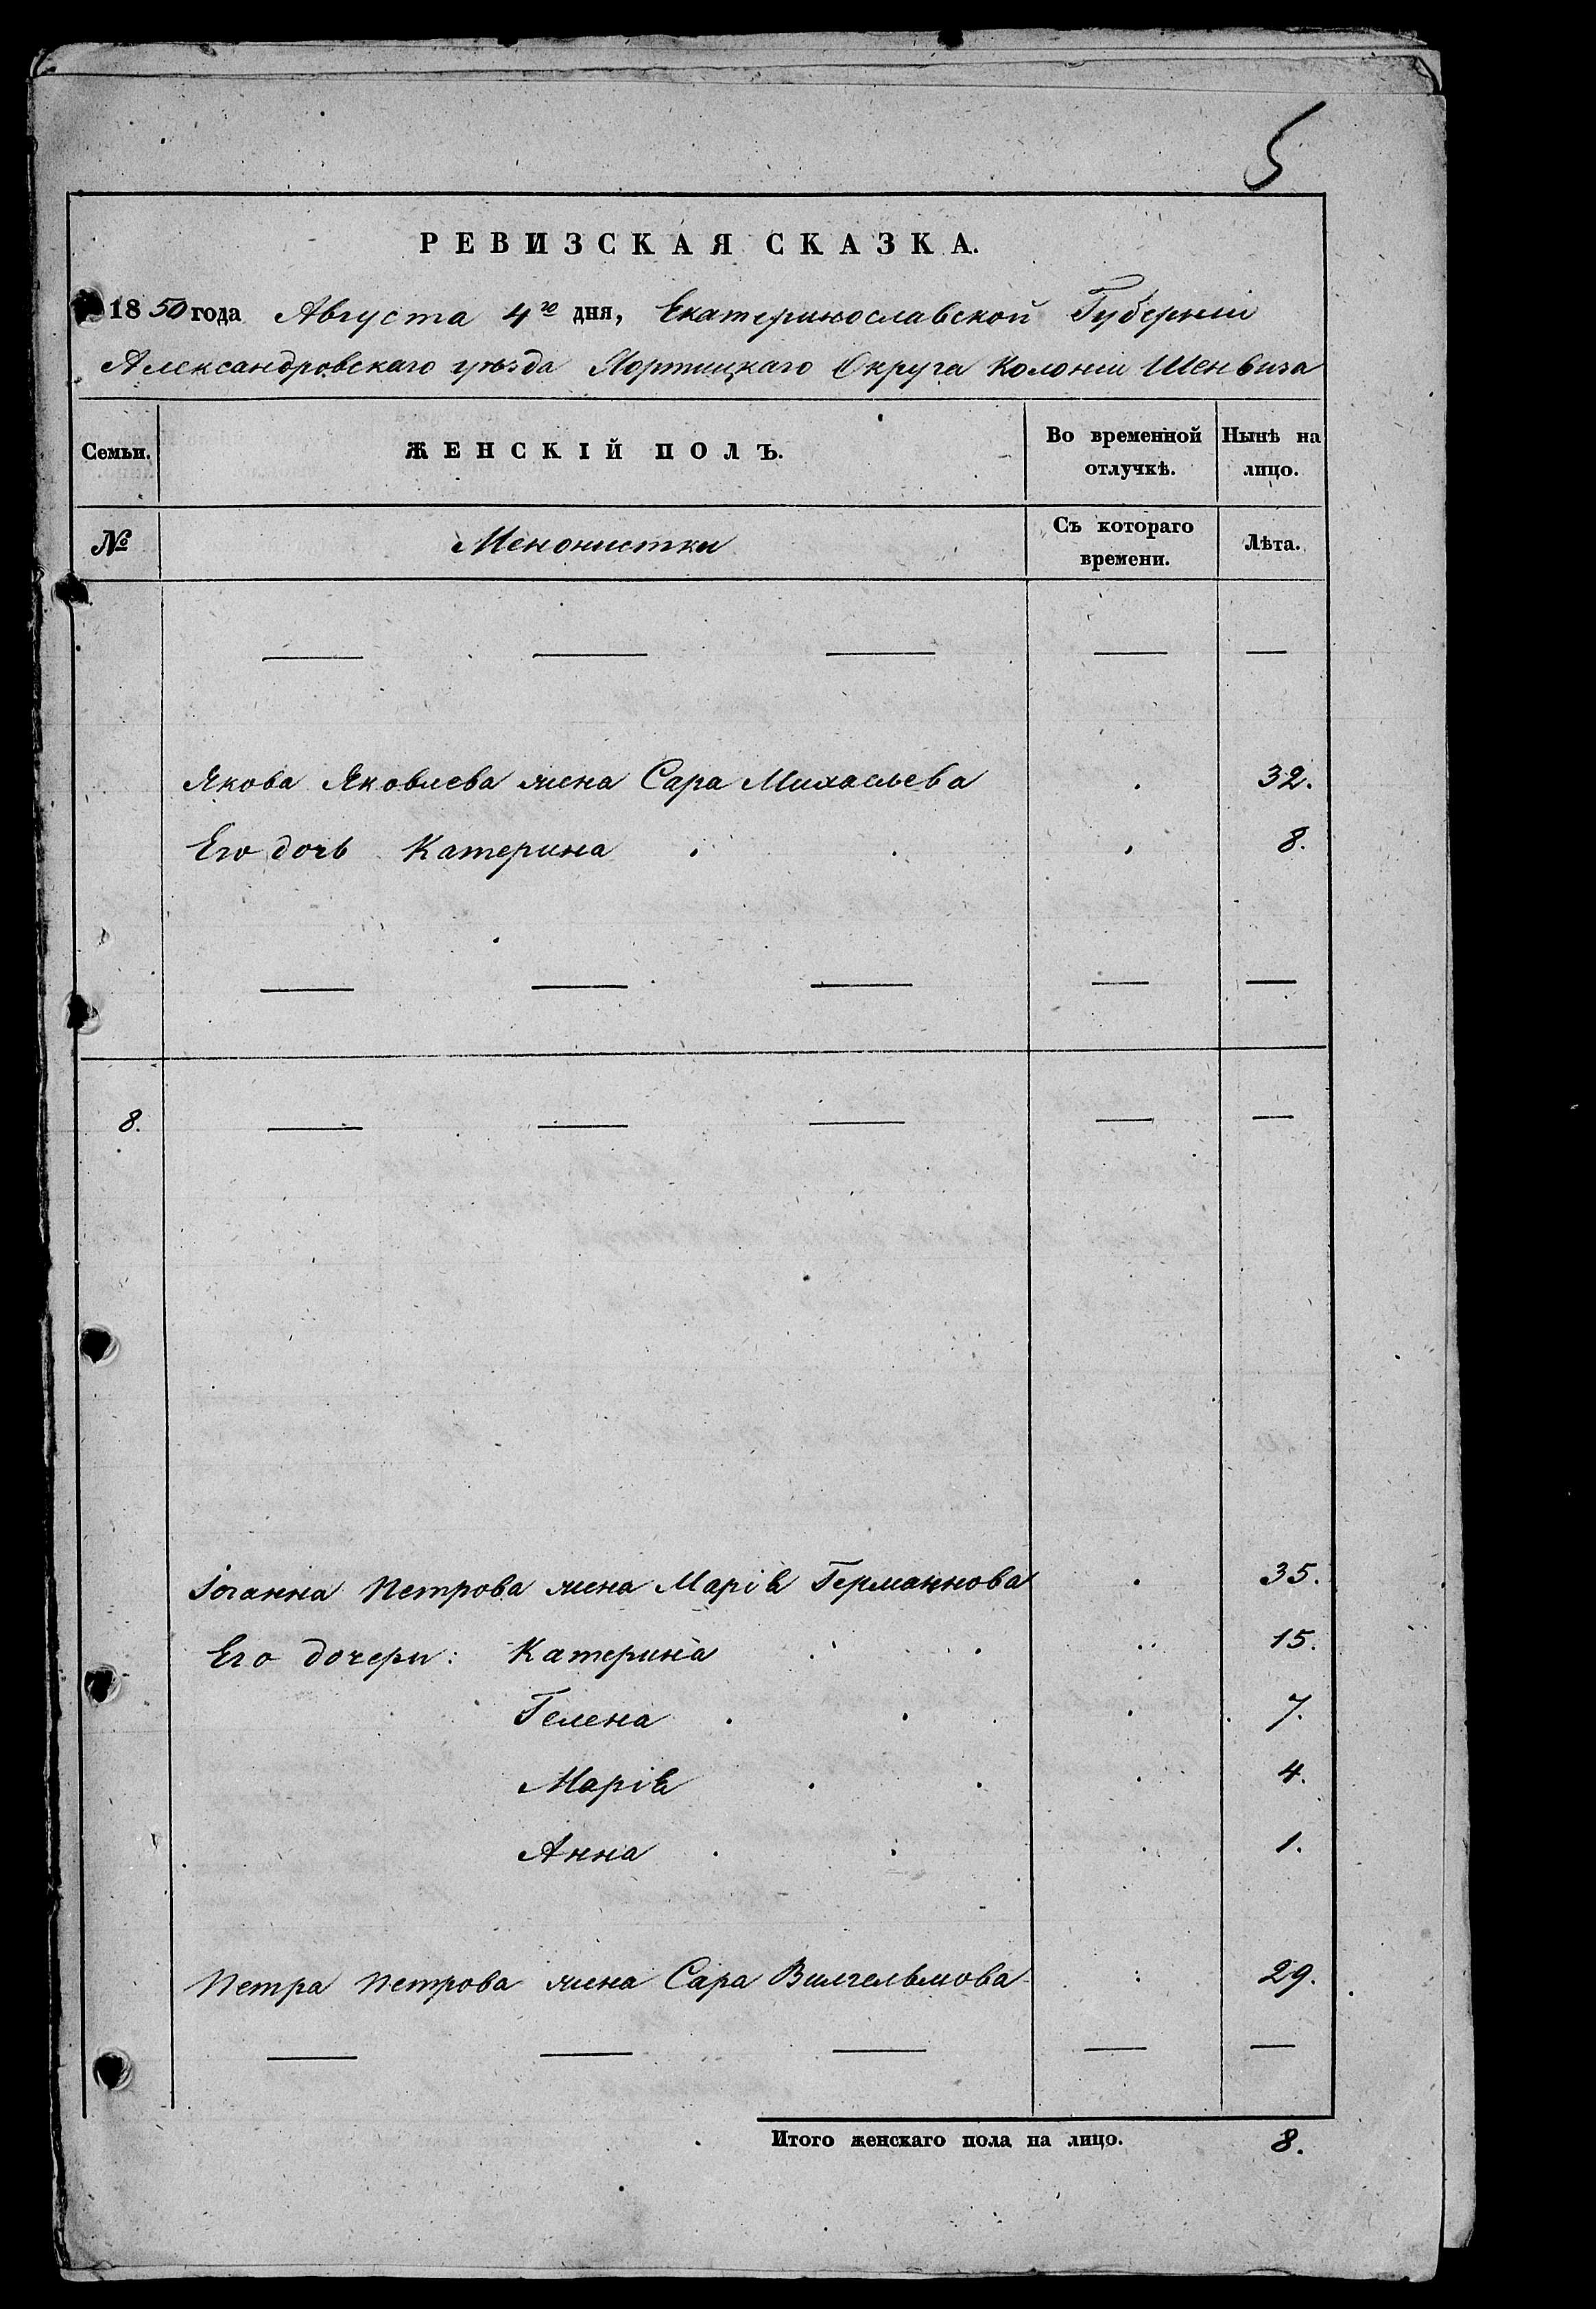 5
РЕВИЗСКАЯ СКАЗКА.
1850 года Августа 4го дня, Екатеринославской Губерніи
Александровскаго уѣзда Хортицкаго Округа Колоніи Шенвиза
Семьи. ЖЕНСКІЙ ПОЛЪ. Во временной отлучкѣ. Нынѣ на лицо.
№ Менонистки Съ котораго времени. Лѣта.
— — — — —
Якова Яковлева жена Сара Михаельева . 32.
Его дочь Катерина . . . 8.
— — — — —
8. — — — — —
Іоганна Петрова жена Марія Германнова . 35.
Его дочери: Катерина . . . 15.
Гелена . . . 7.
Марія . . . 4.
Анна . . . 1.
Петра Петрова жена Сара Вилгельмова . 29.
— — — — —
Итого женскаго пола на лицо. 8.